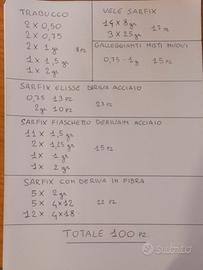 TRABUCCO
2 x 0,50
2 x 0,75
2 x 1 gr
1 x 1,5 gr
1 x 2 gr
8 PZ
VELE SARFIX
14 x 8 gr
3 x 25 gr
17 PZ
GALLEGGIANTI MISTI NUOVI
0,75 - 1 g 15 PZ
SARFIX ELISSE DERIVA ACCIAIO
0,75 13 PZ
2 gr 10 PZ
23 PZ
SARFIX FIASCHETTO DERIVAIN ACCIAIO
11 x 1,5 gr
2 x 1,25 gr
1 x 1 gr
1 x 2 gr
15 PZ
SARFIX CON DERIVA IN FIBRA
5 x 2 gr
5 x 4x12
12 x 4x18
22 PZ
TOTALE 100 PZ
subito